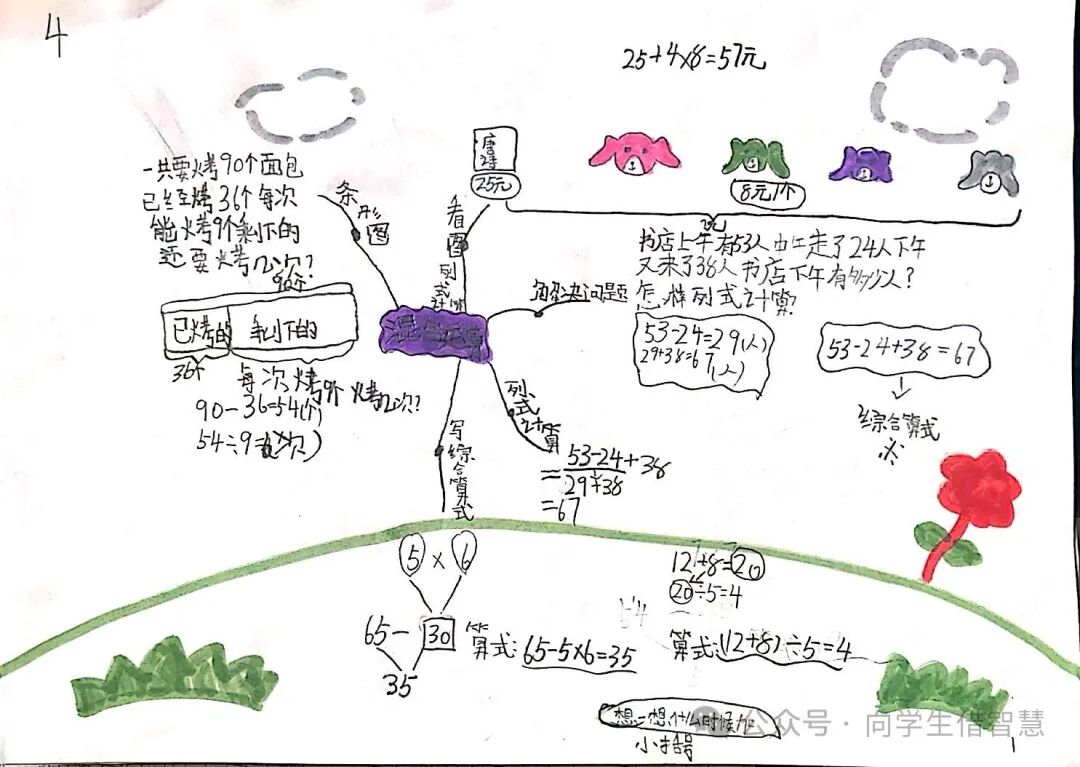 4
25+4×8=57元
一共要烤90个面包
已经烤36个每次
能烤9个剩下的
还要烤几次?
90个
已烤的 剩下的
36个
每次烤9个烤几次?
90-36=54(个)
54÷9=6(次)
条形图
看图列式计算
唐诗
25元
8元1个
?元
解决问题
书店上午有53人中午走了24人下午
又来了38人书店下午有多少人?
怎样列式计算?
53-24=29(人)
29+38=67(人)
53-24+38=67
综合算式
混合运算
列式计算
53-24+38
=29+38
=67
写综合算式
5×6
65-30
35
算式:65-5×6=35
12+8=20
20÷5=4
算式:(12+8)÷5=4
想一想,什么时候加
小括号
公众号·向学生借智慧
1